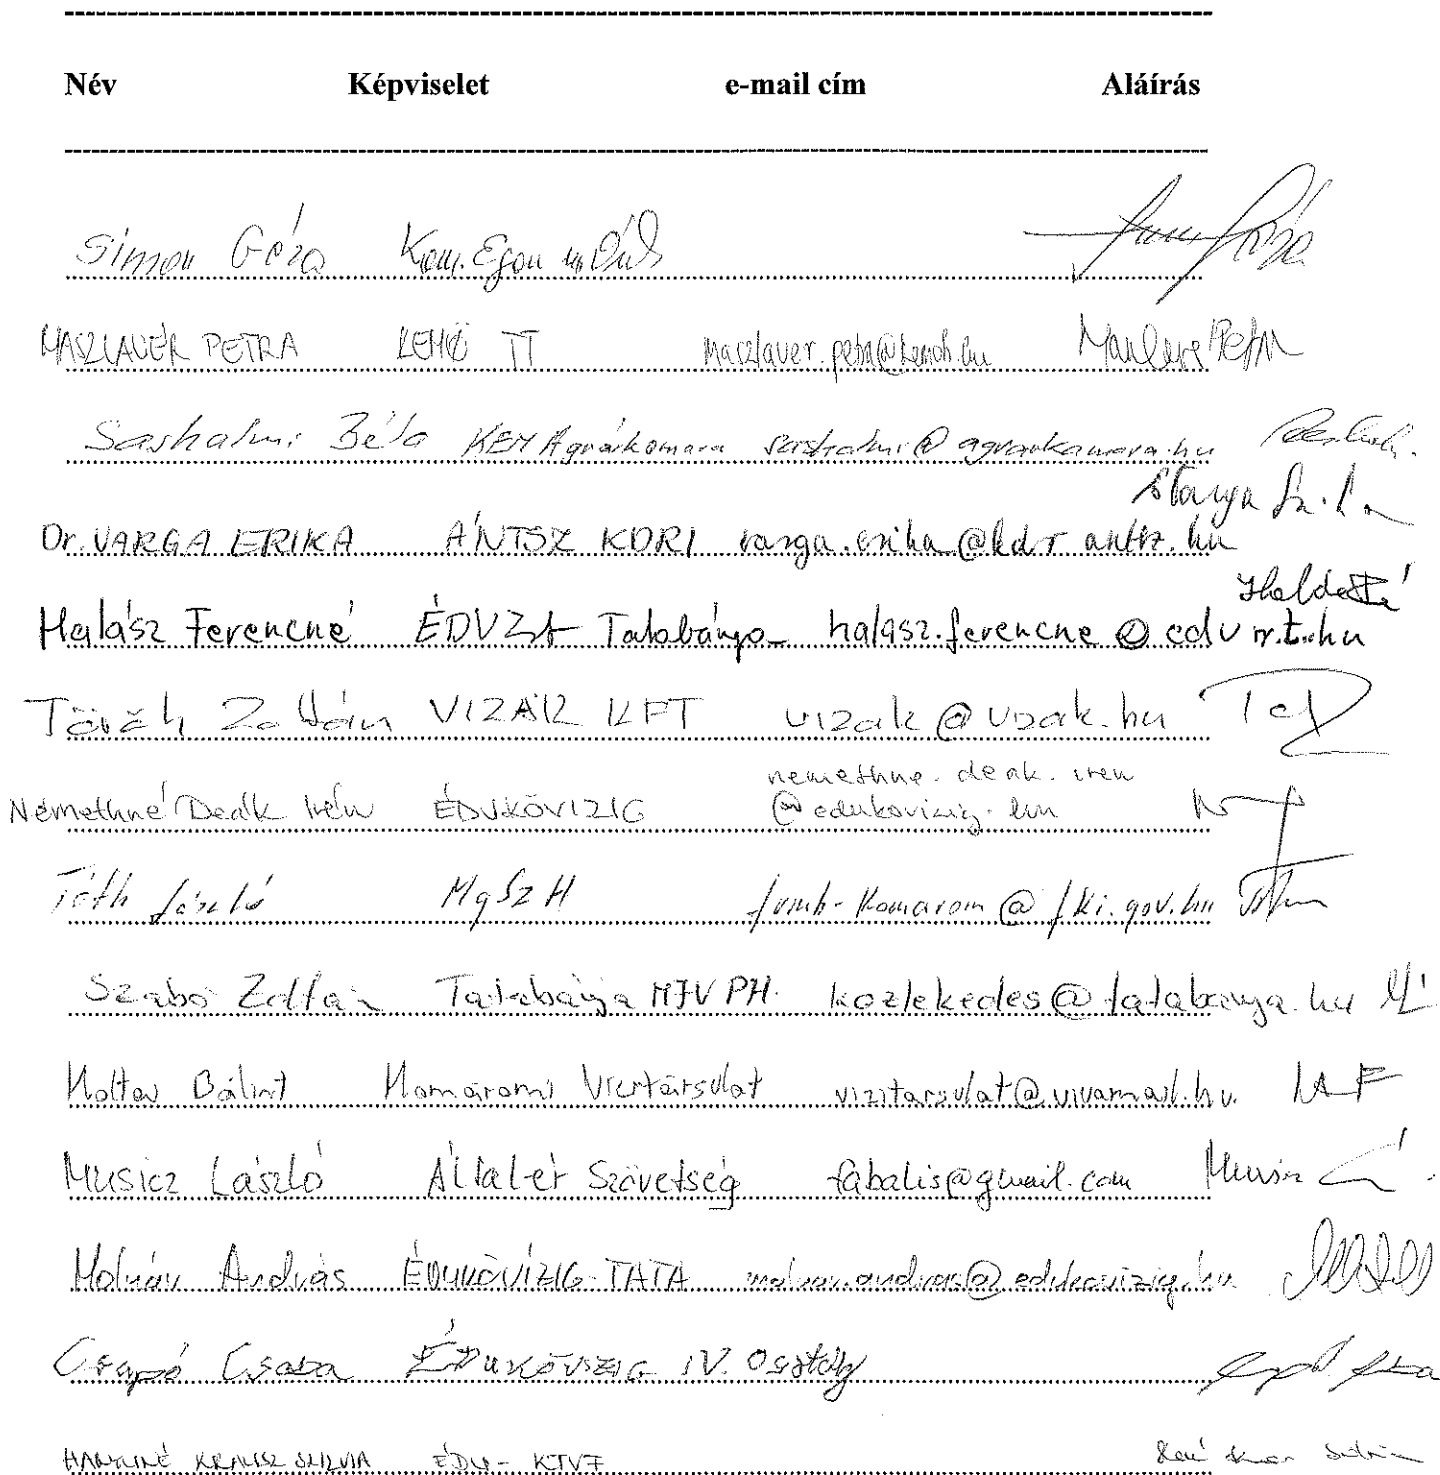 Név Képviselet e-mail cím Aláírás
Simon Géza Kom. Egom
MASZLAVÉR PETRA KEMÖ TT maszlaver.petra@kemoh.hu
Sashalmi Béla KEM Agrárkamara sashalmi@agrarkamara.hu
Dr. VARGA ERIKA ÁNTSZ KDRI varga.erika@kdr.antsz.hu
Halász Ferencné ÉDVZrt Tatabánya halasz.ferencne@edvrt.hu
Török Zoltán VIZÁK KFT vizak@vizak.hu
nemethne.deak.iren
Némethné Deák Irén ÉDUKÖVIZIG @edukovizig.hu
Tóth László MgSzH fvmh-komarom@fki.gov.hu
Szabó Zoltán Tatabánya MJV PH. kozlekedes@tatabanya.hu
Bálint Komáromi Vizitársulat vizitarsulat@vivamail.hu
Musicz László Által-ér Szövetség fabalis@gmail.com
Molnár András ÉDUKÖVÍZIG-TATA molnar.andras@edukovizig.hu
Csapó Csaba ÉDUKÖVIZIG IV. Osztály
KRAUSZ SZILVIA ÉDU-KTVF